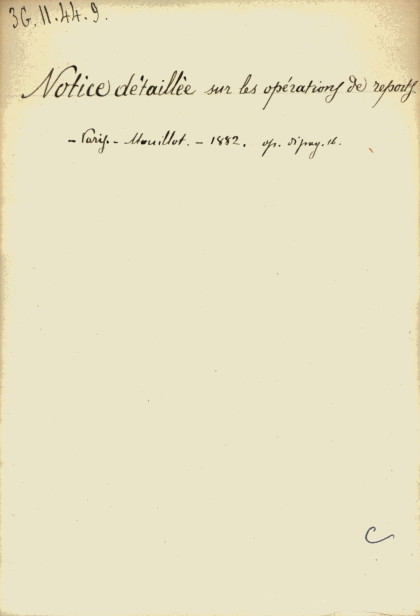 3G.11.44.9.
Notice détaillée sur les opérations de reports.
- Paris. - Mouillot. - 1882. op. di pag. 16.
C